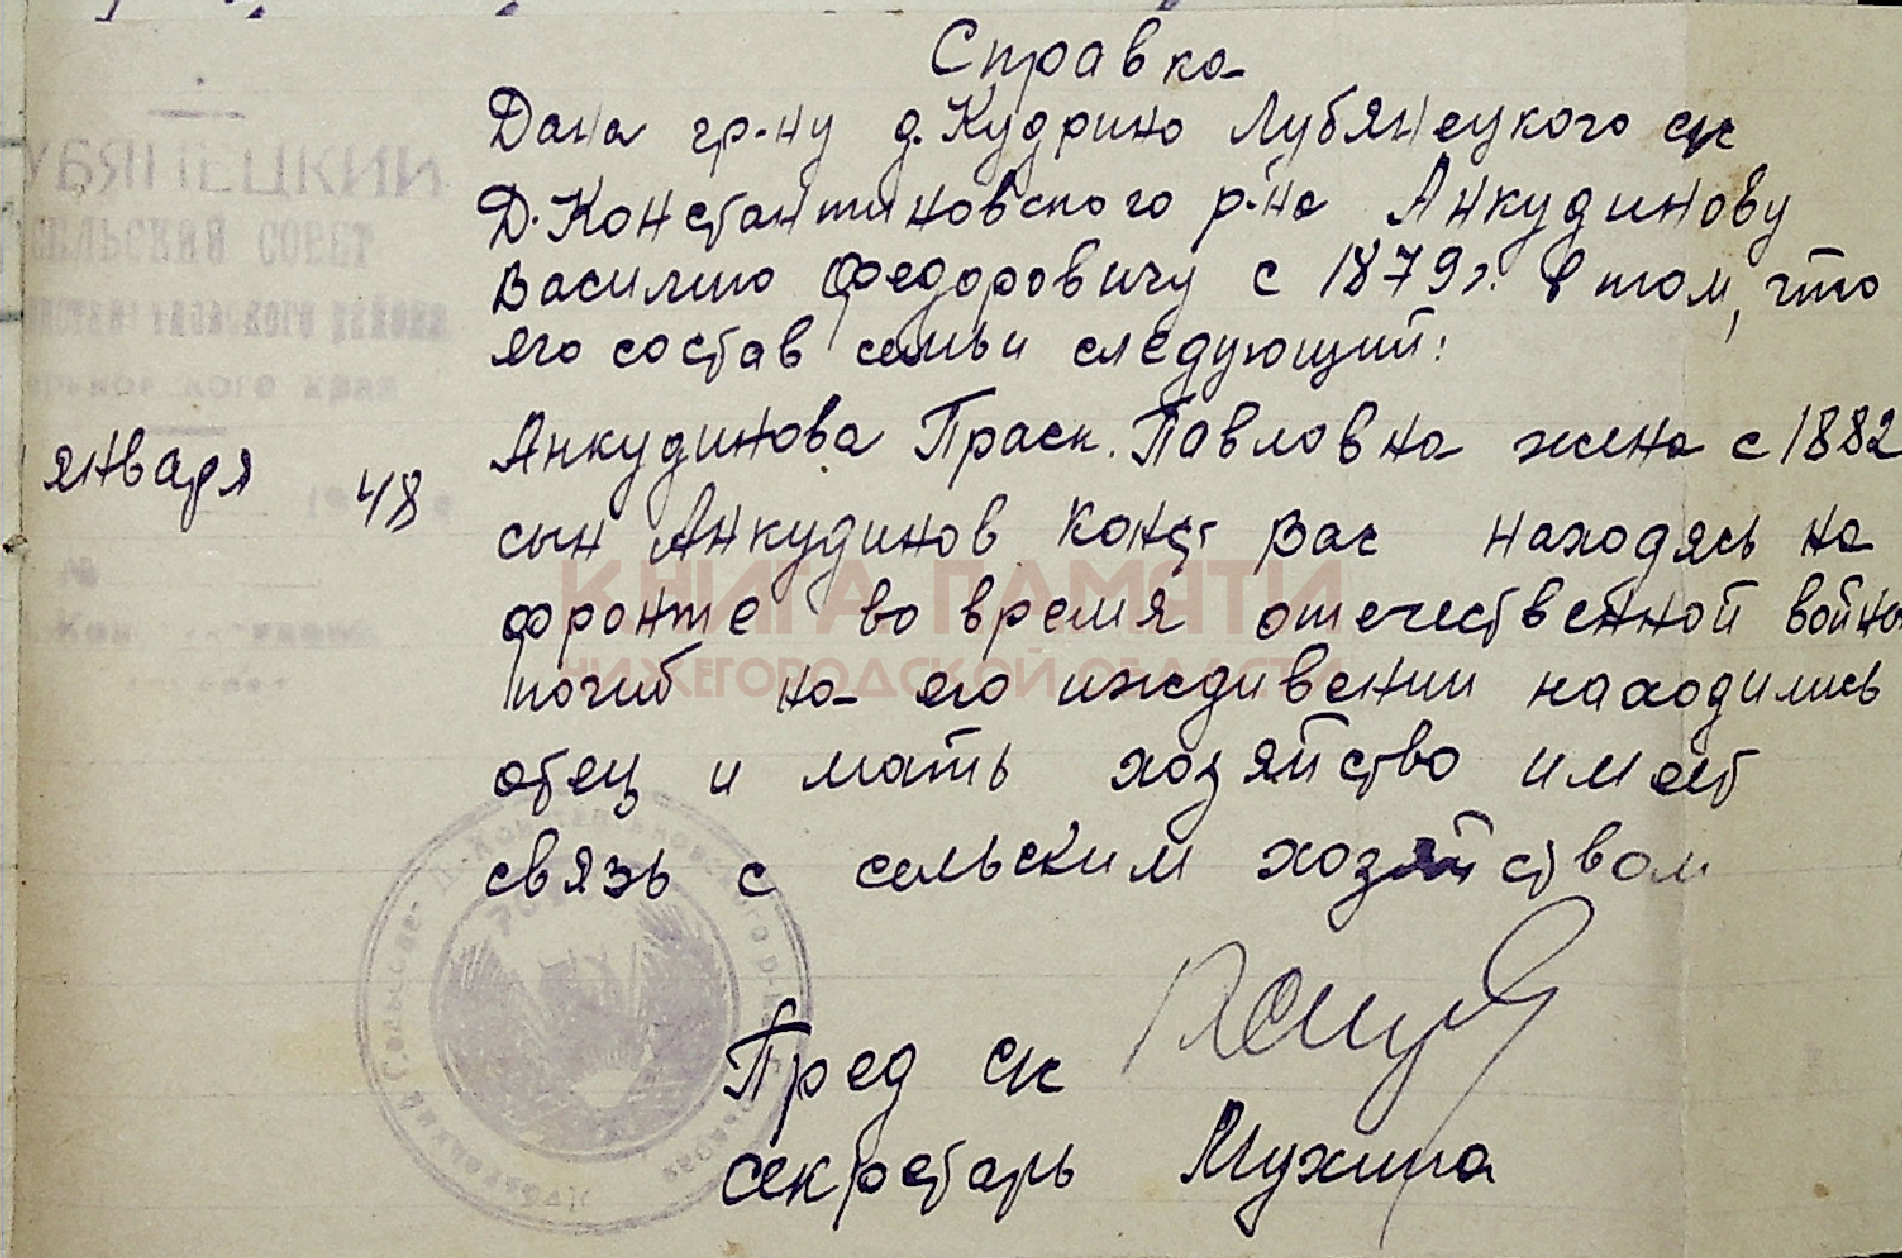 Справка
Дана гр-ну д. Кудрино Лубянецкого с/с
Д. Константиновского р-на Анкудинову
Василию Федоровичу с 1879 г. в том, что
его состав семьи следующий:
Анкудинова Праск. Павловна жена с 1882
сын Анкудинов Конст Вас находясь на
фронте во время отечественной войны
погиб на его иждивении находились
отец и мать хозяйство имеет
связь с сельским хозяйством
Пред с/с
секретарь Мухина
УБЯНЕЦКИЙ
СЕЛЬСКИЙ СОВЕТ
района
края
января 48
№
КНИГА ПАМЯТИ
НИЖЕГОРОДСКОЙ ОБЛАСТИ